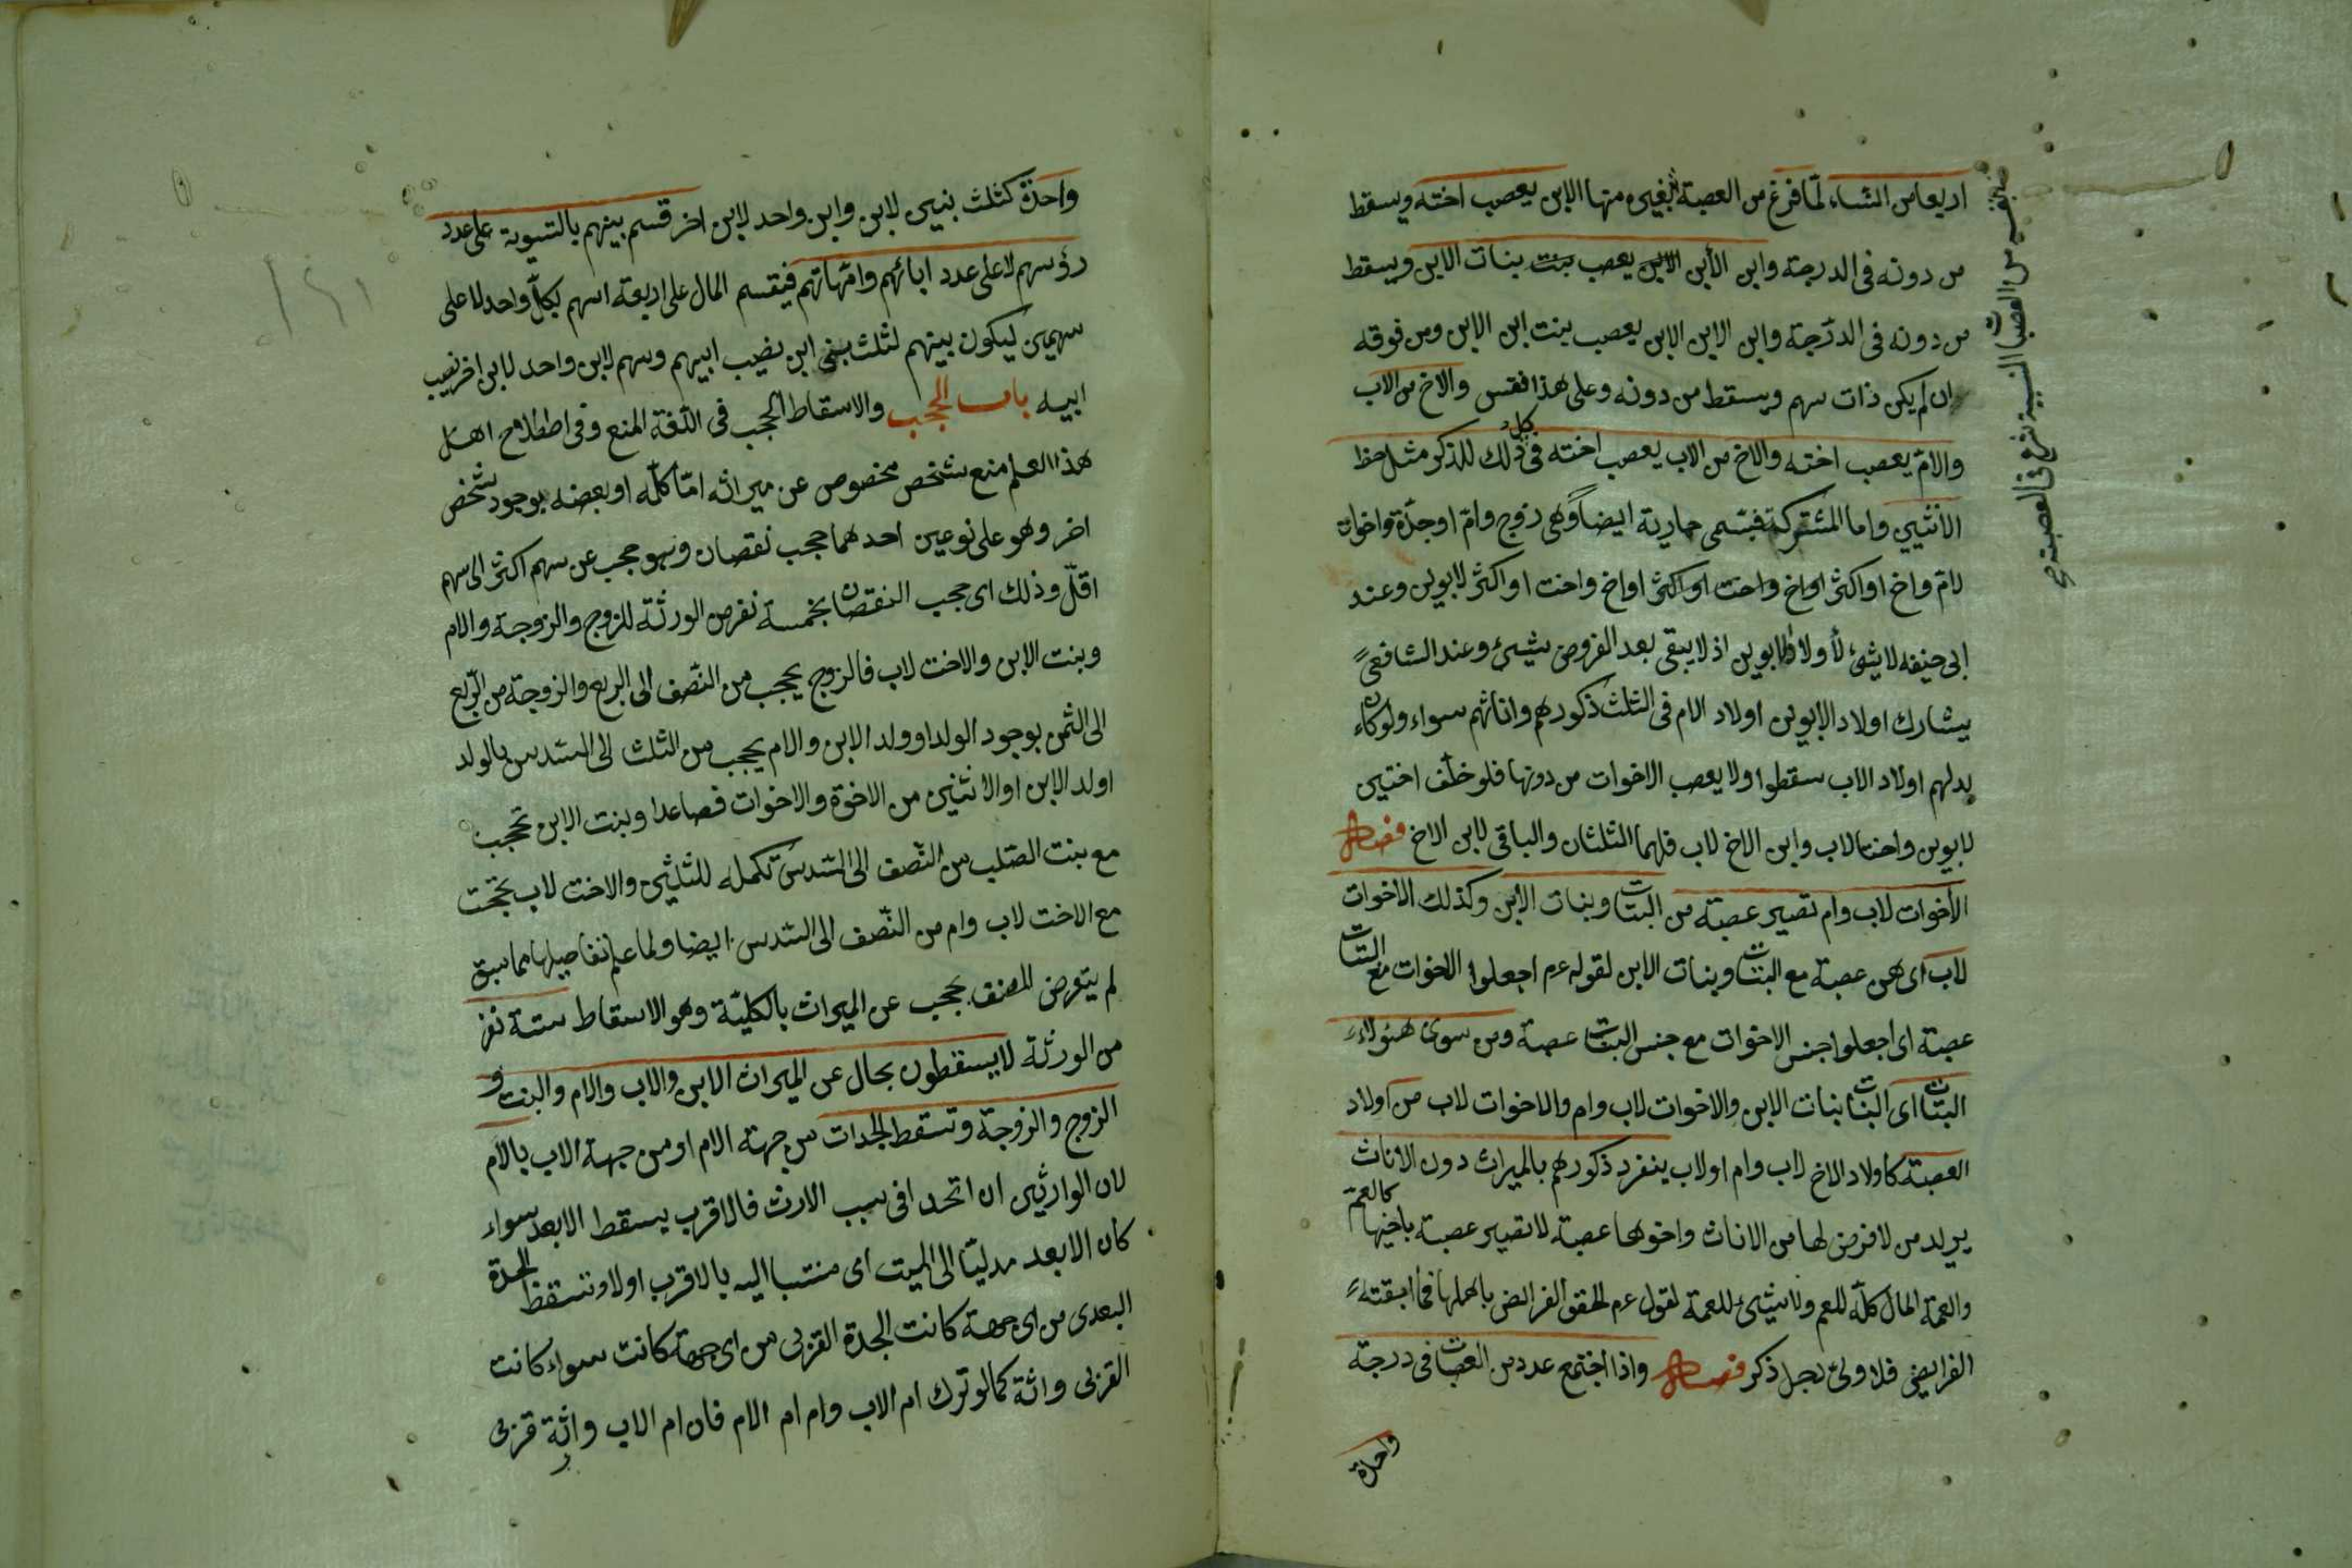 اربعا من النساء لما فرغ من العصبة منها الابن يعصب اخته ويسقط
من دونه فى الدرجة وابن الابن يعصب بنات الابن ويسقط
من دونه فى الدرجة وابن الابن الابن يعصب بنت ابن الابن ومن فوقه
ان لم يكن ذات سهم ويسقط من دونه وعلى هذا فقس والاخ من الاب
والام يعصب اخته والاخ من الاب يعصب اخته فى كل ذلك للذكر مثل حظ
الانثيين واما المشتركة فتسمى حمارية ايضا وهى زوج وام او جدة واخوان
لام واخ او اكثر او اخ واخت او اكثر او اخ واخت او اكثر لابوين وعند
ابى حنيفه لا شئ لاولاد الابوين اذ لا يبقى بعد الفروض شئ وعند الشافعى
يشارك اولاد الابوين اولاد الام فى الثلث ذكورهم واناثهم سواء ولو كان
بدلهم اولاد الاب سقطوا ولا يعصب الاخوات من دونها فلو خلف اختين
لابوين واختا لاب وابن الاخ لاب فلهما الثلثان والباقى لابن الاخ فصل
الاخوات لاب وام تصير عصبة من البنات وبنات الابن وكذلك الاخوات
لاب اى هن عصبة مع البنات وبنات الابن لقوله عم اجعلوا الاخوات مع البنات
عصبة اى اجعلوا جنس الاخوات مع جنس البنات عصبة ومن سوى هؤلاء
البنات اى البنات بنات الابن والاخوات لاب وام والاخوات لاب من اولاد
العصبة كاولاد الاخ لاب وام او لاب ينفرد ذكورهم بالميراث دون الاناث
يريد من لا فرض لها من الاناث واخوها عصبة لا تصير عصبة باخيها كالعم
والعمة المال كله للعم ولا شئ للعمة لقوله عم الحقوا الفرائض باهلها فما ابقته
الفرايض فلاولى رجل ذكر فصل واذا اجتمع عدد من العصبات فى درجة
واحدة
واحدة كثلث بنين لابن وابن واحد لابن اخر قسم بينهم بالتسوية على عدد
رؤسهم لا على عدد ابائهم وامهاتهم فيقسم المال على اربعة اسهم لكل واحد لا على
سهمين ليكون بينهم لثلث بنى ابن نصيب ابيهم وسهم لابن واحد لابن اخر نصيب
ابيه باب الحجب والاسقاط الحجب فى اللغة المنع وفى اصطلاح اهل
هذا العلم منع شخص مخصوص عن ميراثه اما كله او بعضه بوجود شخص
اخر وهو على نوعين احدهما حجب نقصان وهو حجب عن سهم اكثر الى سهم
اقل وذلك اى حجب النقصان بخمسة نفر من الورثة للزوج والزوجة والام
وبنت الابن والاخت لاب فالزوج يحجب من النصف الى الربع والزوجة من الربع
الى الثمن بوجود الولد او ولد الابن والام يحجب من الثلث الى السدس بالولد
او لد الابن او الاثنين من الاخوة والاخوات فصاعدا وبنت الابن تحجب
مع بنت الصلب من النصف الى السدس تكمله للثلثين والاخت لاب تحجب
مع الاخت لاب وام من النصف الى السدس ايضا ولما علم تفاصيلها مما سبق
لم يتعرض المصنف حجب عن الميراث بالكلية وهو الاسقاط ستة نفر
من الورثة لا يسقطون بحال عن الميراث الابن والاب والام والبنت و
الزوج والزوجة وتسقط الجدات من جهة الام او من جهة الاب بالام
لان الوارثين ان اتحدا فى سبب الارث فالاقرب يسقط الابعد سواء
كان الابعد مدليا الى الميت اى منتسبا اليه بالاقرب اولا وتسقط الجدة
البعدى من اى جهة كانت الجدة القربى من اى جهة كانت سواء كانت
القربى وارثة كما لو ترك ام الاب وام ام الام فان ام الاب وارثة قربى